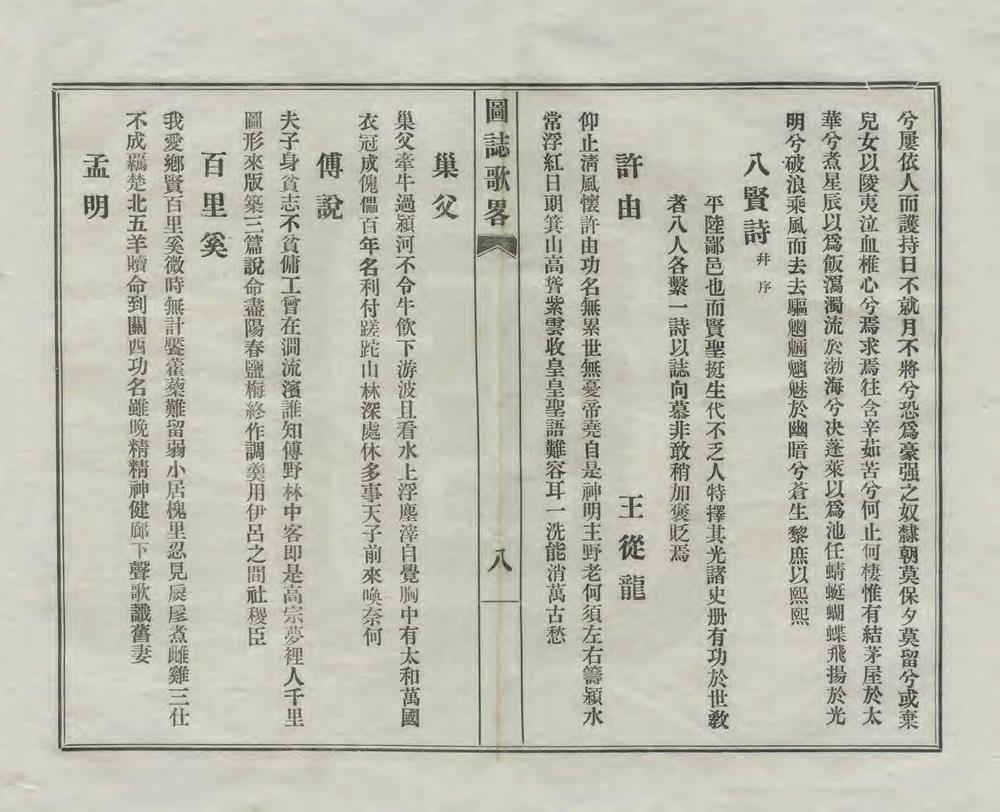 兮屢依人而護持日不就月不將兮恐爲豪强之奴隸朝莫保夕莫留兮或棄
兒女以陵夷泣血椎心兮焉求焉往含辛茹苦兮何止何棲惟有結茅屋於太
華兮煮星辰以爲飯瀉濁流於渤海兮决蓬萊以爲池任蜻蜓蝴蝶飛揚於光
明兮破浪乘風而去去驅魍魎魑魅於幽暗兮蒼生黎庶以熙熙
八賢詩 幷序
平陸鄙邑也而賢聖挺生代不乏人特擇其光諸史册有功於世教
者八人各繫一詩以誌向慕非敢稍加褒貶焉
許由 王從龍
仰止淸風懷許由功名無累世無憂帝堯自是神明主野老何須左右籌潁水
常浮紅日期箕山高聳紫雲收皇皇聖語難容耳一洗能消萬古愁
圖誌歌畧
八
巢父
巢父牽牛過潁河不令牛飮下游波且看水上浮塵滓自覺胸中有太和萬國
衣冠成傀儡百年名利付蹉跎山林深處休多事天子前來喚奈何
傅說
夫子身貧志不貧傭工曾在澗流濱誰知傅野林中客即是高宗夢裡人千里
圖形來版築三篇說命盡陽春鹽梅終作調羹用伊呂之間社稷臣
百里奚
我愛鄉賢百里奚微時無計饜藿藜難留弱小居槐里忍見扊扅煮雌雞三仕
不成羈楚北五羊贖命到關西功名雖晚精精神健廊下聲歌識舊妻
孟明